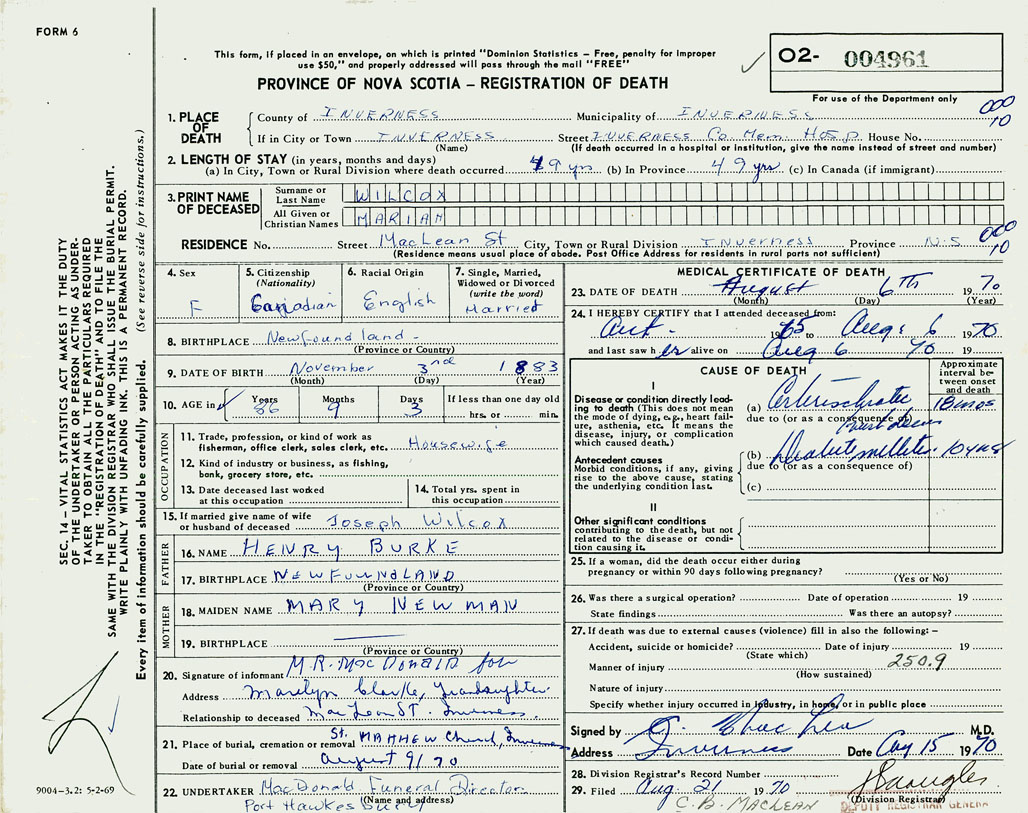 FORM 6
This form, if placed in an envelope, on which is printed "Dominion Statistics – Free, penalty for improper
use $50," and properly addressed will pass through the mail "FREE"
PROVINCE OF NOVA SCOTIA – REGISTRATION OF DEATH
O2- 004961
For use of the Department only
000
10
1. PLACE OF DEATH
County of INVERNESS Municipality of INVERNESS
If in City or Town INVERNESS Street INVERNESS Co. Mem. HOSP. House No.
(Name) (If death occurred in a hospital or institution, give the name instead of street and number)
2. LENGTH OF STAY (in years, months and days)
(a) In City, Town or Rural Division where death occurred 49 yrs (b) In Province 49 yrs (c) In Canada (if immigrant)
3. PRINT NAME OF DECEASED
Surname or Last Name WILCOX
All Given or Christian Names MARIAM
RESIDENCE No. Street MacLean St City, Town or Rural Division Inverness Province N.S
000
10
(Residence means usual place of abode. Post Office Address for residents in rural parts not sufficient)
4. Sex
F
5. Citizenship
(Nationality)
Canadian
6. Racial Origin
English
7. Single, Married,
Widowed or Divorced
(write the word)
Married
8. BIRTHPLACE Newfoundland
(Province or Country)
9. DATE OF BIRTH November 3rd 1883
(Month) (Day) (Year)
10. AGE in
Years Months Days If less than one day old
86 9 3 hrs. or min.
OCCUPATION
11. Trade, profession, or kind of work as
fisherman, office clerk, sales clerk, etc. Housewife
12. Kind of industry or business, as fishing,
bank, grocery store, etc.
13. Date deceased last worked
at this occupation
14. Total yrs. spent in
this occupation
15. If married give name of wife
or husband of deceased Joseph Wilcox
FATHER
16. NAME HENRY BURKE
17. BIRTHPLACE NEWFOUNDLAND
(Province or Country)
MOTHER
18. MAIDEN NAME MARY NEWMAN
19. BIRTHPLACE
(Province or Country)
20. Signature of informant M.R. MacDonald for
Address Marilyn Clarke, Grandaughter
Relationship to deceased MacLean ST. Inverness.
21. Place of burial, cremation or removal St. MATTHEW Church, Inverness
Date of burial or removal August 9/70
22. UNDERTAKER MacDonald Funeral Director
(Name and address)
Port Hawkesbury
MEDICAL CERTIFICATE OF DEATH
23. DATE OF DEATH August 6TH 1970
(Month) (Day) (Year)
24. I HEREBY CERTIFY that I attended deceased from:
1965 to Aug. 6 1970
and last saw her alive on Aug 6 70 19
CAUSE OF DEATH
Approximate interval between onset and death
I
Disease or condition directly leading to death (This does not
the mode of dying, e.g., heart failure, asthenia, etc. It means the
disease, injury, or complication
which caused death.)
(a) 18 mos
due to (or as a consequence of)
Antecedent causes
Morbid conditions, if any, giving
rise to the above cause, stating
the underlying condition last.
(b) 10 yrs
due to (or as a consequence of)
(c)
II
Other significant conditions
contributing to the death, but not
related to the disease or condition causing it.
25. If a woman, did the death occur either during
pregnancy or within 90 days following pregnancy?
(Yes or No)
26. Was there a surgical operation? Date of operation 19
State findings Was there an autopsy?
27. If death was due to external causes (violence) fill in also the following: –
Accident, suicide or homicide? Date of injury 19
(State which) 250.9
Manner of injury
(How sustained)
Nature of injury
Specify whether injury occurred in industry, in home, or in public place
Signed by M.D.
Address Inverness Date Aug 15 1970
28. Division Registrar's Record Number
29. Filed Aug 21 1970
(Division Registrar)
C. B. MACLEAN
DEPUTY REGISTRAR GENERAL
SEC. 14 – VITAL STATISTICS ACT MAKES IT THE DUTY
OF THE UNDERTAKER OR PERSON ACTING AS UNDER-
TAKER TO OBTAIN ALL THE PARTICULARS REQUIRED
IN THE "REGISTRATION OF DEATH" AND TO FILE THE
SAME WITH THE DIVISION REGISTRAR WHO SHALL ISSUE THE BURIAL PERMIT.
WRITE PLAINLY WITH UNFADING INK. THIS IS A PERMANENT RECORD.
Every item of information should be carefully supplied. (See reverse side for instructions.)
9004-3.2: 5-2-69